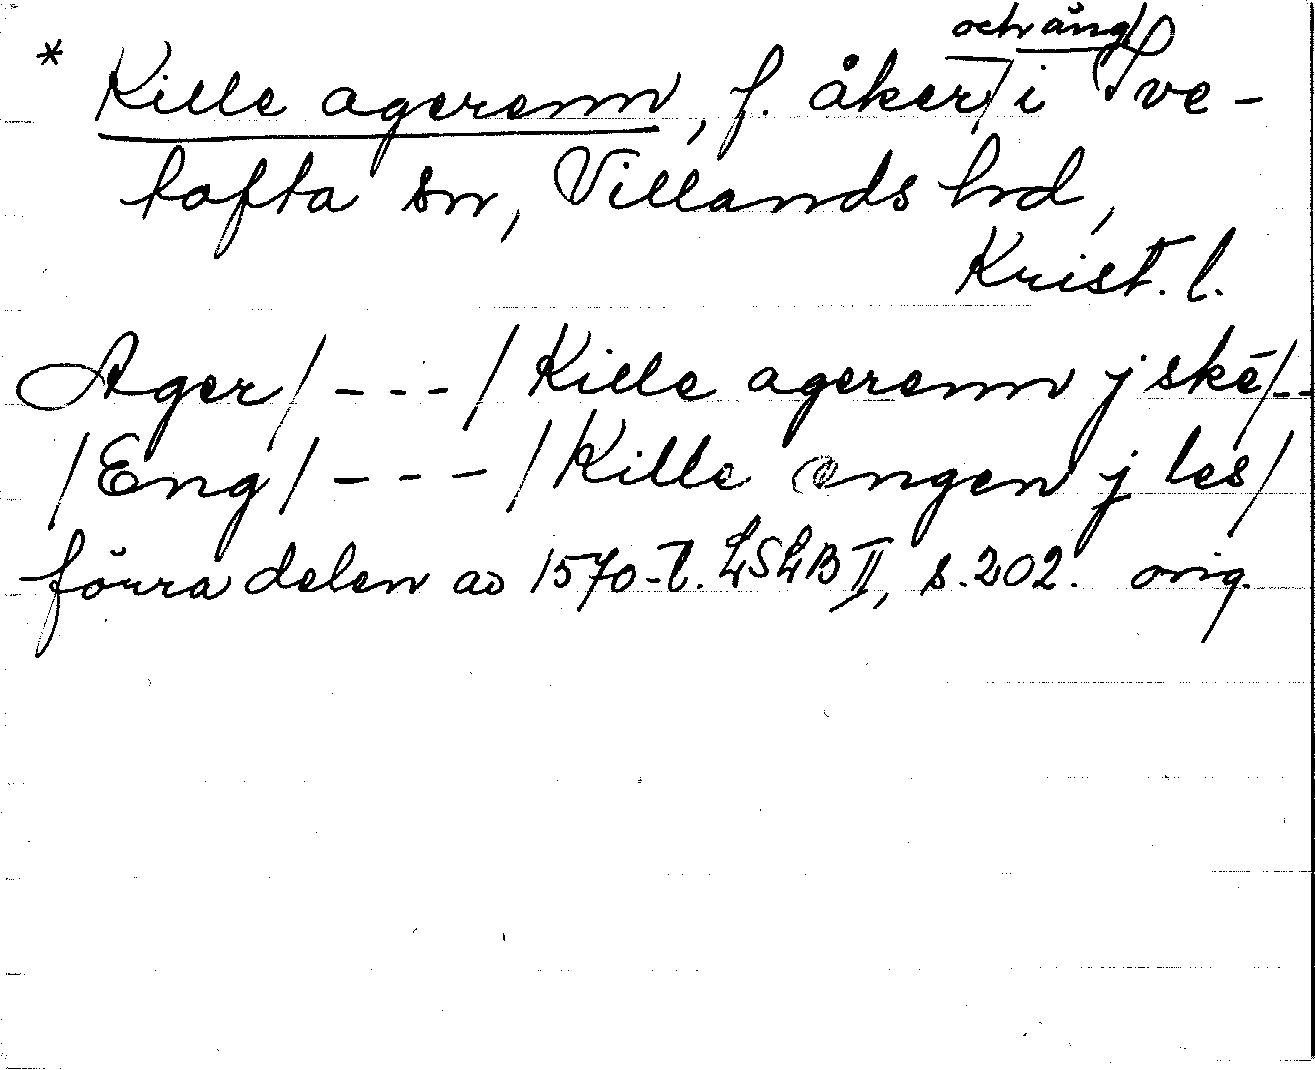 och äng
* Kille agerenn, f. åker/ i Sve-
tofta sn, Villands hrd,
Krist. l.
Ager/ - - - / Kille agerenn j skē/--
/Eng/ - - - / Kille engen j les/
förra delen av 1570-t. LSLB II, s. 202. orig.